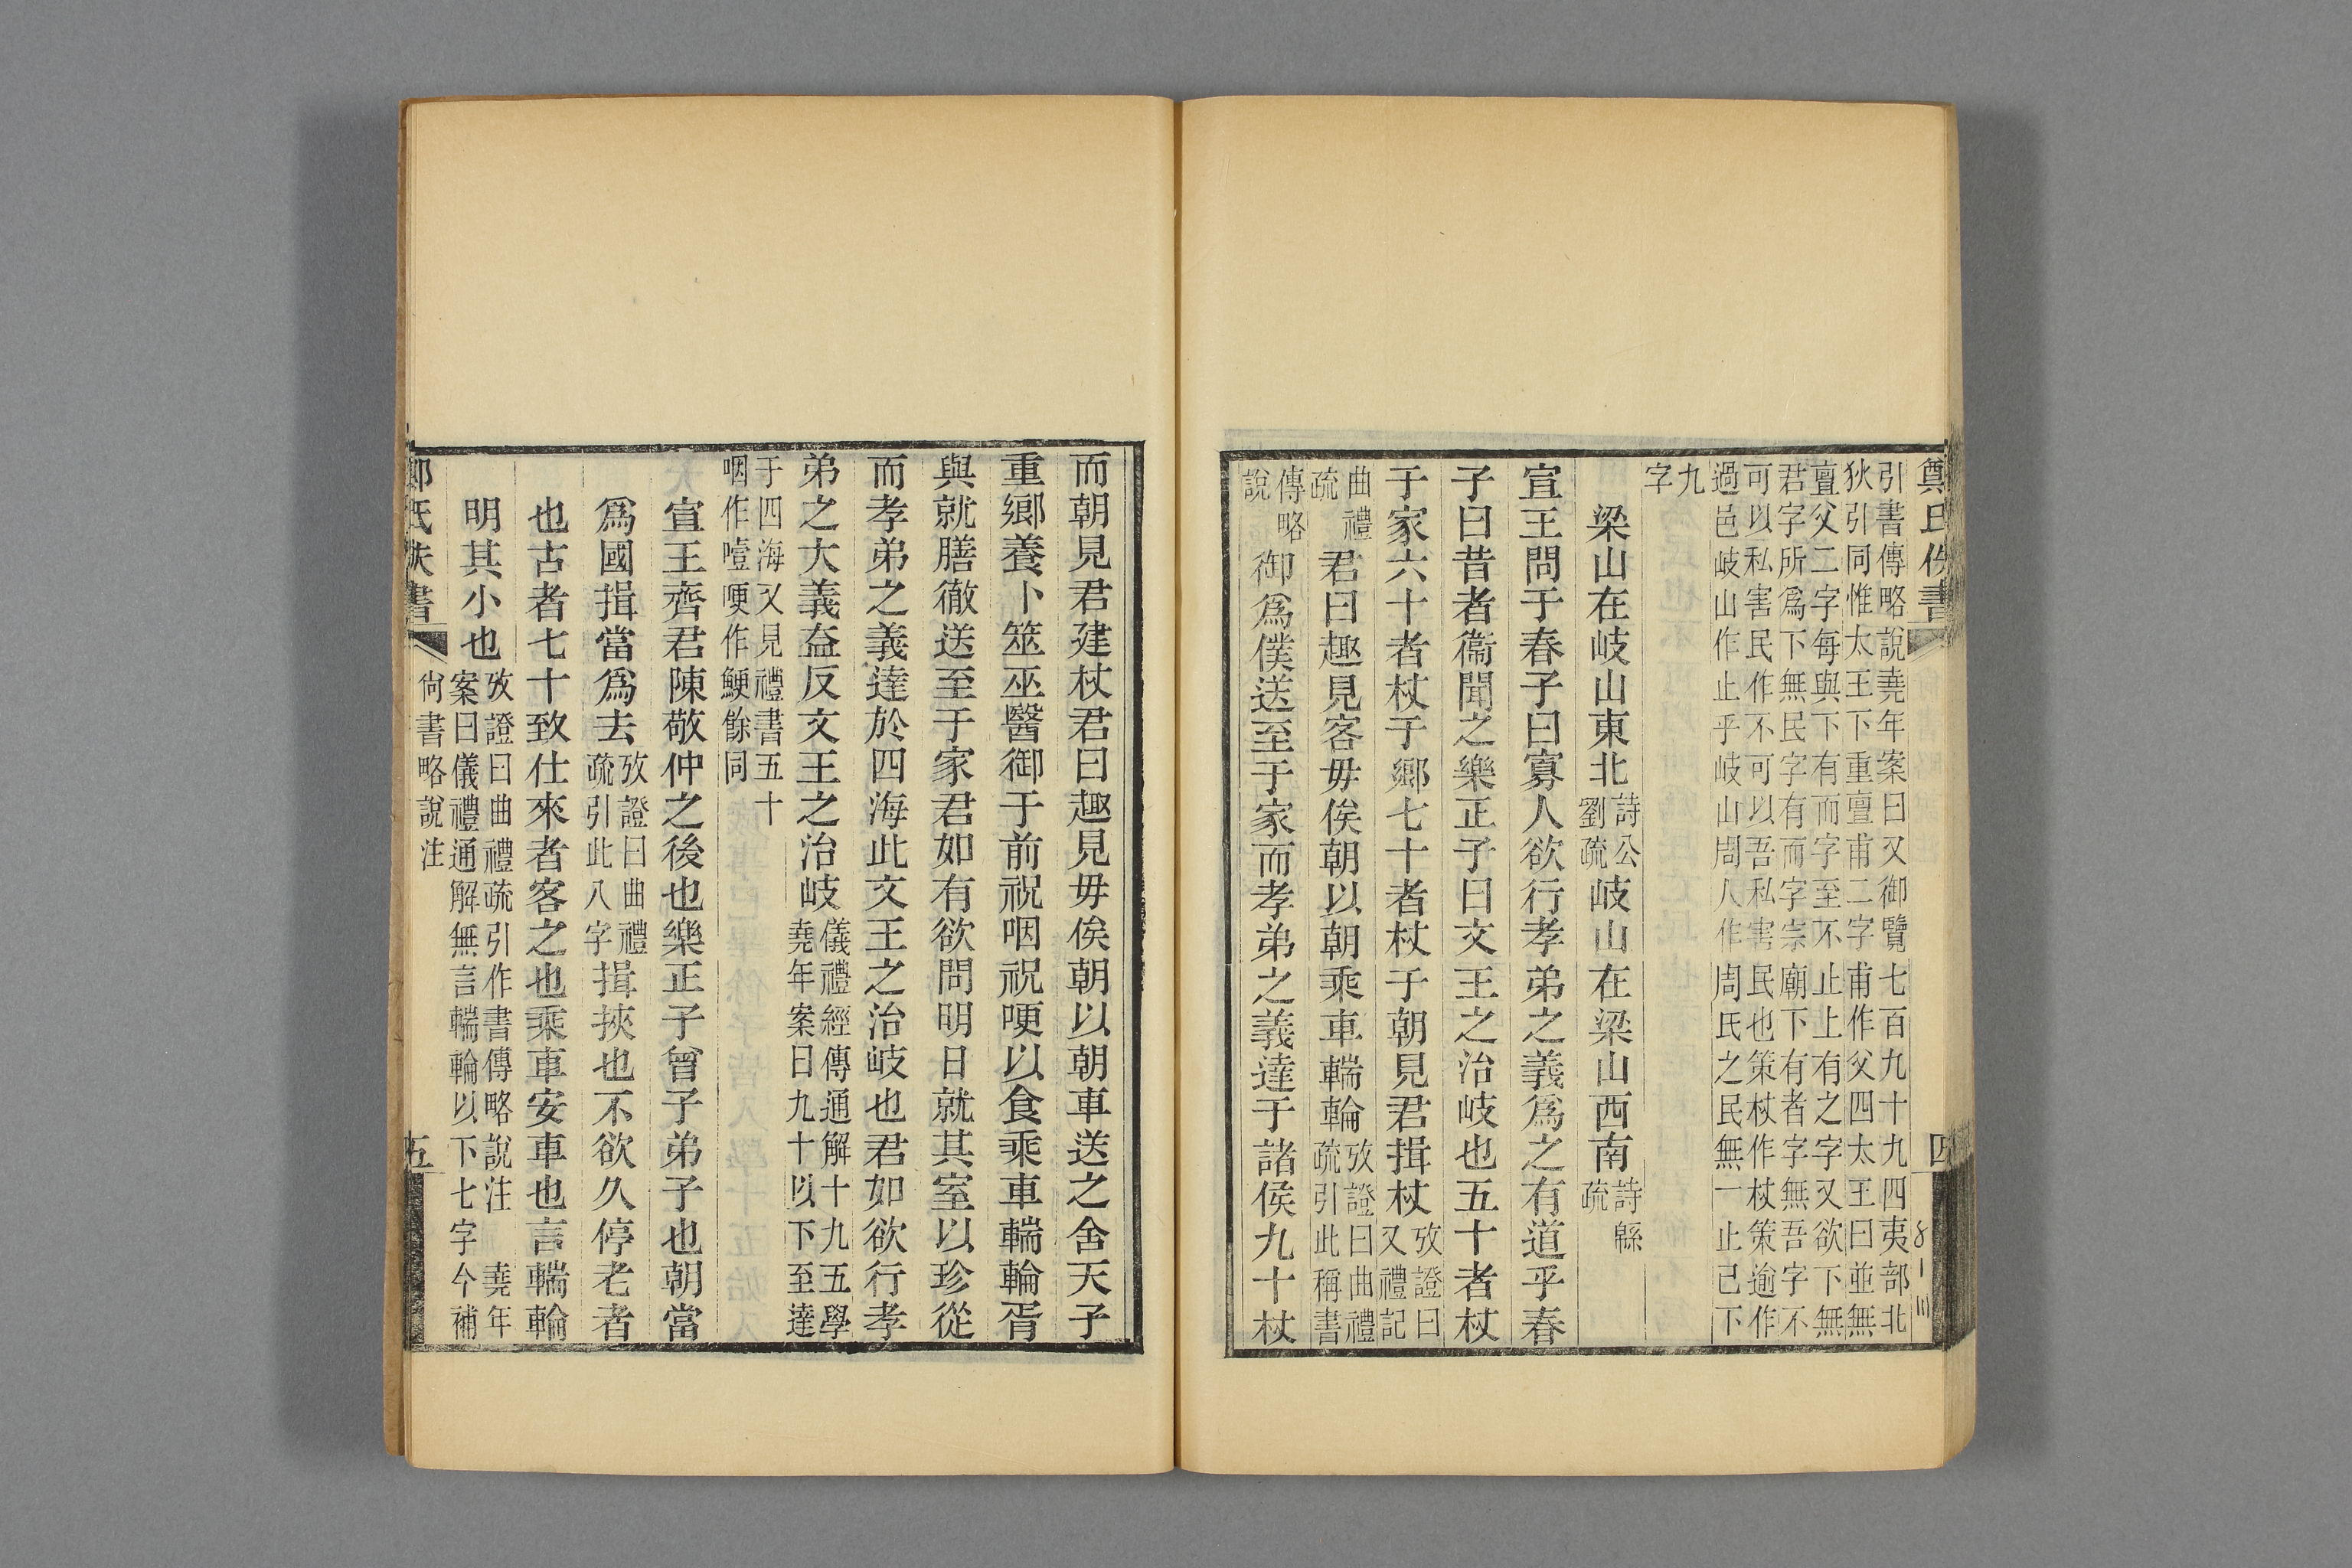 鄭氏佚書
四
引書傳略說堯年案曰又御覽七百九十九四夷部北
狄引同惟太王下重亶甫二字甫作父四太王曰並無
亶父二字每與下有而字至不止上有之字又欲下無
君字所爲下無民字有而字宗廟下有者字無吾字不
可以私害民作不可以吾私害民也策杖作杖策逾作
過邑岐山作止乎岐山周人作周氏之民無一止已下
九
字
梁山在岐山東北詩公劉疏岐山在梁山西南詩緜疏
宣王問于春子曰寡人欲行孝弟之義爲之有道乎春
子曰昔者衞聞之樂正子曰文王之治岐也五十者杖
于家六十者杖于鄉七十者杖于朝見君揖杖攷證曰又禮記
曲禮疏君曰趣見客毋俟朝以朝乘車輲輪攷證曰曲禮疏引此稱書
傳略說御爲僕送至于家而孝弟之義達于諸侯九十杖
而朝見君建杖君曰趣見毋俟朝以朝車送之舍天子
重鄉養卜筮巫醫御于前祝咽祝哽以食乘車輲輪胥
與就膳徹送至于家君如有欲問明日就其室以珍從
而孝弟之義達於四海此文王之治岐也君如欲行孝
弟之大義益反文王之治岐儀禮經傳通解十九五學堯年案曰九十以下至達
于四海又見禮書五十
咽作噎哽作鯁餘同
宣王齊君陳敬仲之後也樂正子曾子弟子也朝當
爲國揖當爲去攷證曰曲禮疏引此八字揖挾也不欲久停老者
也古者七十致仕來者客之也乘車安車也言輲輪
明其小也攷證曰曲禮疏引作書傳略說注 堯年案曰儀禮通解無言輲輪以下七字今補
尙書略說注
鄭氏佚書
五